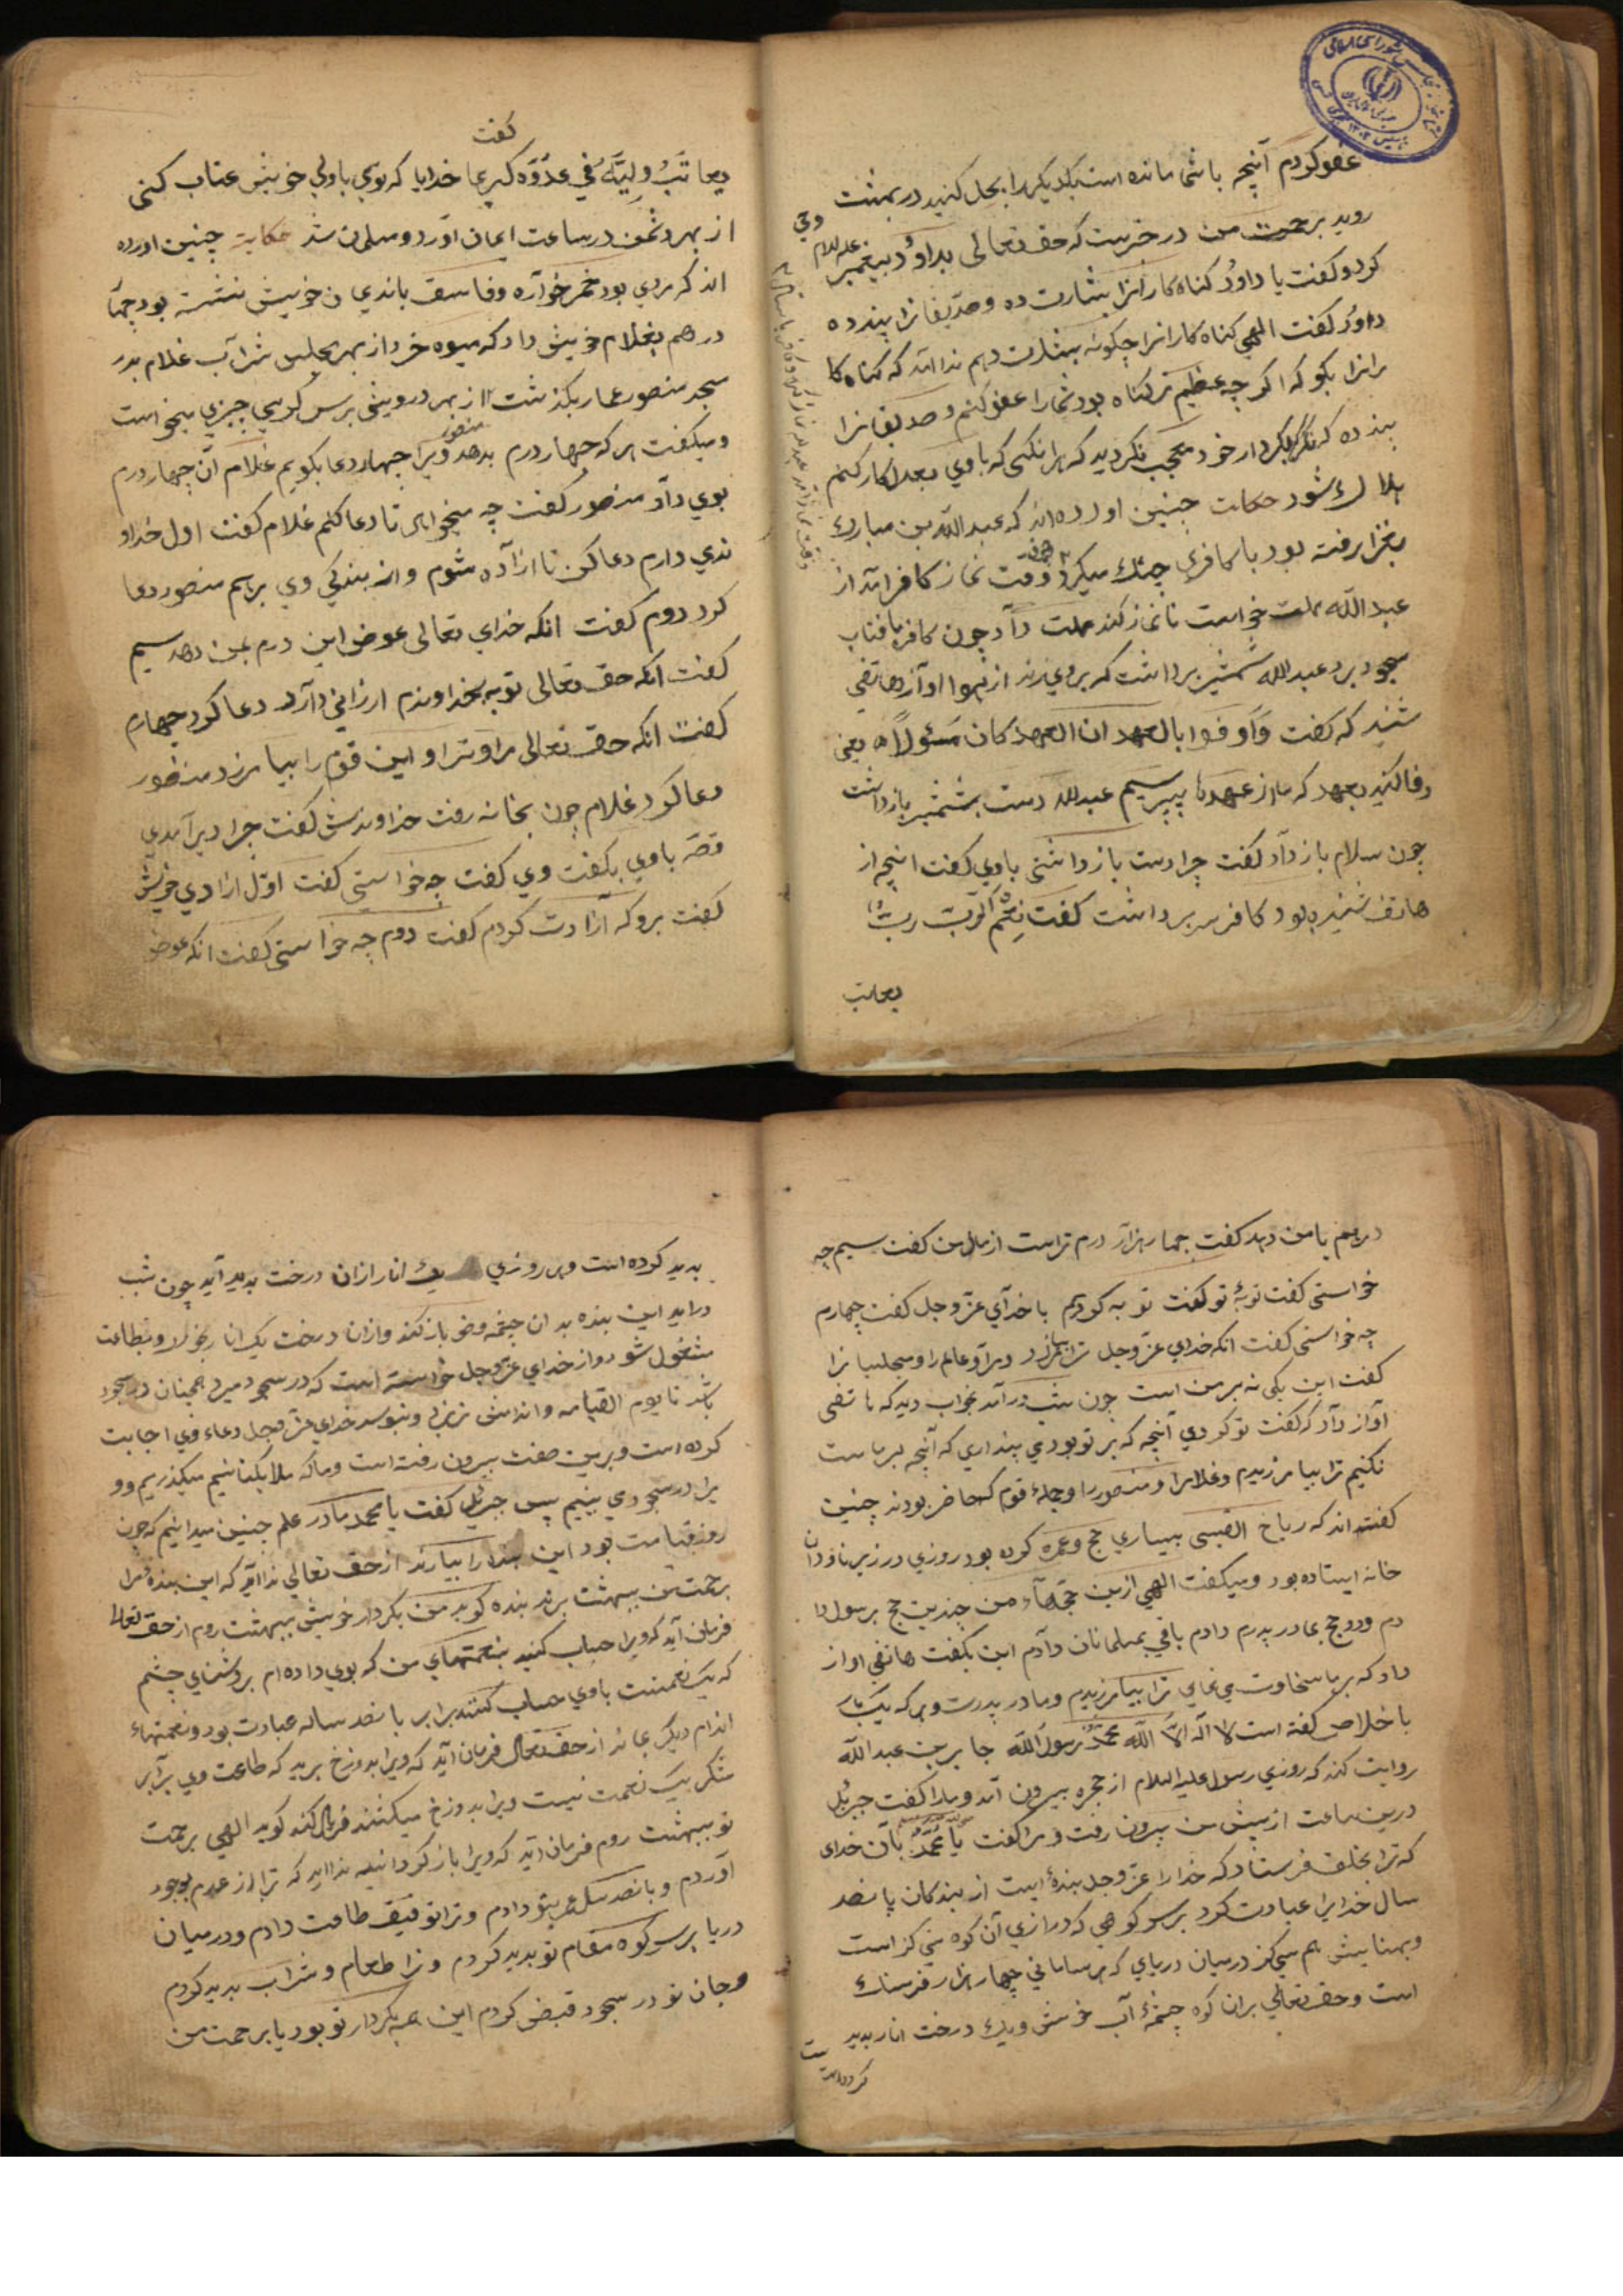 عفو کردم آنچه باشما مانده است یکدیگر را بحل کنید در بهشت
روید برحمت من در خبرست که حق تعالی بداوُد پیغمبر علیه السلام وحی
کرد و کفت یا داوُد کناه کارانرا بشارت ده و صدیقانرا پند ده
داوُد کفت الهی کناه کارانرا چکونه بشارت دهم ندا آمد که کناه کا
رانرا بکو که اکرچه عظیم تر کناه بود شما را عفو کنم و صدیقانرا
پند ده که بکردار خود معجب نکردید که هر انکسی که با وی بعدل کار کنم
هلاک شود حکایت چنین اورده اند که عبد الله بن مبارک
بغزا رفته بود با کافری جنک میکرد وقت نماز کافر آمد از
عبد الله مهلت خواست تا نماز کند مهلت داد چون کافر بافتاب
سجود برد عبد الله شمشیر برداشت که بروی زند از هوا اوآز هاتفی
شنید که کفت وَاَوفوا بالعهد ان العهد کان مَسئولاً یعنی
وفا کنید بعهد که ما از عهدها بپرسیم عبد الله دست بشمشیر بازداشت
چون سلام باز داد کفت چرا دست باز داشتی با وی کفت انچه از
هاتف شنیده بود کافر سر برداشت کفت نِعمَ الرّبّ ربّ
یعاتب
کفت
یعاتبُ ولیَّهُ فی عدُوّه کبریما خدایا که توی با ولی خویش عتاب کنی
از بهر دشمن در ساعت ایمان اورد و مسلمان شد حکایت چنین اورده
اند که مردی بود خمر خواره و فاسق با ندیمان خویش نشسته بود چهار
درهم بغلام خویش داد که میوه خرد از بهر مجلس شراب غلام بدر
مسجد منصور عمار بکذشت از بهر درویشی بر سر کرسی چیزی میخواست
و میکفت هر که چهار درم بدهد منصور ویرا چهار دعا بکویم غلام آن چهار درم
بوی داد منصور کفت چه میخواهی تا دعا کنم غلام کفت اول خداو
ندی دارم دعا کن تا ازاده شوم و از بندکی وی برهم منصور دعا
کرد دوم کفت انکه خدای تعالی عوض این درم بمن دهد سیم
کفت انکه حق تعالی توبه بخداوندم ارزانی دارد دعا کرد چهارم
کفت انکه حق تعالی مرا و ترا و این قوم را بیامرزد منصور
دعا کرد غلام چون بخانه رفت خداوندش کفت چرا دیر آمدی
قصّه با وی بکفت وی کفت چه خواستی کفت اوّل ازادی خویش
کفت برو که آزادت کردم کفت دوم چه خواستی کفت انکه عوض
درهم بامن دهد کفت چهار هزار درم تراست از مال من کفت سیم چه
خواستی کفت توبهٔ تو کفت توبه کردم با خدای عزّ و جل کفت چهارم
چه خواستی کفت انکه خدای عزّ و جل ترا بیامرزد و مرا و عالم را و مجلسیانرا
کفت این یکی نه بر من است چون شب در آمد بخواب دید که هاتفی
آواز داد که کفت تو کردی آنچه که بر تو بودی پنداری که آنچه بر ماست
نکنیم ترا بیامرزیدیم و غلامرا و منصور را و جملهٔ قوم که حاضر بودند چنین
کفته اند که رباح القیسی بسیاری حج و عمره کرده بود روزی در زیر ناودان
خانه ایستاده بود و میکفت الهی ازین حجهاء من چندین حج برسول دا
دم و دو حج بمادر پدرم دادم باقی بمسلمانان دادم این بکفت هاتفی اواز
داد که بر ما سخاوت می نمایی ترا بیامرزیدیم و مادر پدرت و هر که یک بار
باخلاص کفته است لا اله الاّ الله محمّد رسول الله جابر بن عبد الله
روایت کند که روزی رسول علیه السلام از حجره بیرون آمد و مارا کفت جبرئل
درین ساعت از پیش من بیرون رفت و مرا کفت یا محمّد بآن خدای
که ترا بخلق فرستاد که خدا را عزّ و جل بندهٔ است از بندکان پانصد
سال خدایرا عبادت کرد بر سر کوهی که درازی آن کوه سی کز است
و پهنایش هم سی کز در میان دریای که هر سامانی چهار هزار فرسنک
است و حق تعالی بران کوه چشمهٔ آب خوش و یک درخت انار بدید
کرده است
بدید کرده است و هر روزی یک انار ازان درخت بدید آید چون شب
دراید این بنده بدان چشمه وضو باز کند وازان درخت یک انار بخورد و بطاعت
مشغول شود و از خدای عزّ و جل خواسته است که در سجود میرد همچنان در سجود
باشد تا یوم القیامه و اندامش نریزد و نپوسد خدای عزّ و جل دعاء وی اجابت
کرده است و برین صفت بیرون رفته است و ما که ملایکتانیم میکذریم و و
یرا در سجود می بینیم پس جبرئل کفت یا محمد ما در علم چنین میدانیم که چون
روز قیامت بود این بنده را بیارند از حق تعالی ندا آید که این بندهٔ مرا
برحمت من ببهشت برند بنده کوید من بکردار خویش ببهشت روم از حق تعالی
فرمان آید که ویرا حساب کنید بنعمتهای من که بوی داده ام بروشنای چشم
که یک نعمتست با وی حساب کنند برابر پانصد ساله عبادت بود و نعمتهاء
اندام دیکر بماند از حق تعالی فرمان آید که ویرا بدوزخ برید که طاعت وی برابر
شکر یک نعمت نیست ویرا بدوزخ میکشند فریاد کند کوید الهی برحمت
تو ببهشت روم فرمان آید که ویرا باز کردانید ندا اید که ترا از عدم بوجود
آوردم و پانصد سال عمر بتو دادم و ترا توفیق طاعت دادم و در میان
دریا بر سر کوه مقام تو بدید کردم و ترا طعام و شراب بدید کردم
و جان تو در سجود قبض کردم این همه بکردار تو بود یا برحمت من